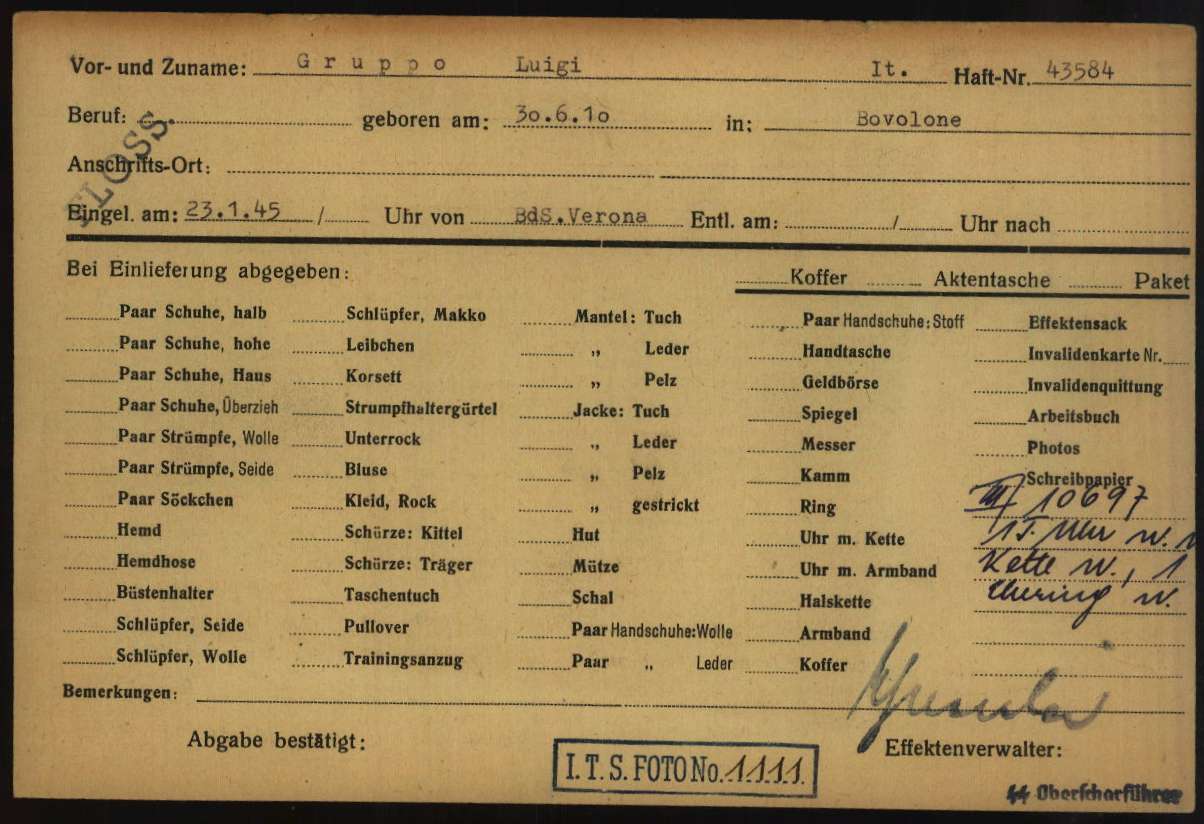 Vor- und Zuname: Gruppo Luigi It. Haft-Nr. 43584
Beruf: geboren am: 30.6.10 in: Bovolone
FLOSS.
Anschrifts-Ort:
Eingel. am: 23.1.45 / Uhr von BdS.Verona Entl. am: / Uhr nach
Bei Einlieferung abgegeben: Koffer Aktentasche Paket
Paar Schuhe, halb Schlüpfer, Makko Mantel: Tuch Paar Handschuhe: Stoff Effektensack
Paar Schuhe, hohe Leibchen „ Leder Handtasche Invalidenkarte Nr.
Paar Schuhe, Haus Korsett „ Pelz Geldbörse Invalidenquittung
Paar Schuhe, Überzieh Strumpfhaltergürtel Jacke: Tuch Spiegel Arbeitsbuch
Paar Strümpfe, Wolle Unterrock „ Leder Messer Photos
Paar Strümpfe, Seide Bluse „ Pelz Kamm Schreibpapier
Paar Söckchen Kleid, Rock „ gestrickt Ring III/10697
Hemd Schürze: Kittel Hut Uhr m. Kette 1 T. Uhr w. 1
Hemdhose Schürze: Träger Mütze Uhr m. Armband Kette w., 1
Büstenhalter Taschentuch Schal Halskette Ehering w.
Schlüpfer, Seide Pullover Paar Handschuhe: Wolle Armband
Schlüpfer, Wolle Trainingsanzug Paar „ Leder Koffer
Bemerkungen:
Abgabe bestätigt: Effektenverwalter:
I.T.S. FOTO No. 1111
SS Oberscharführer